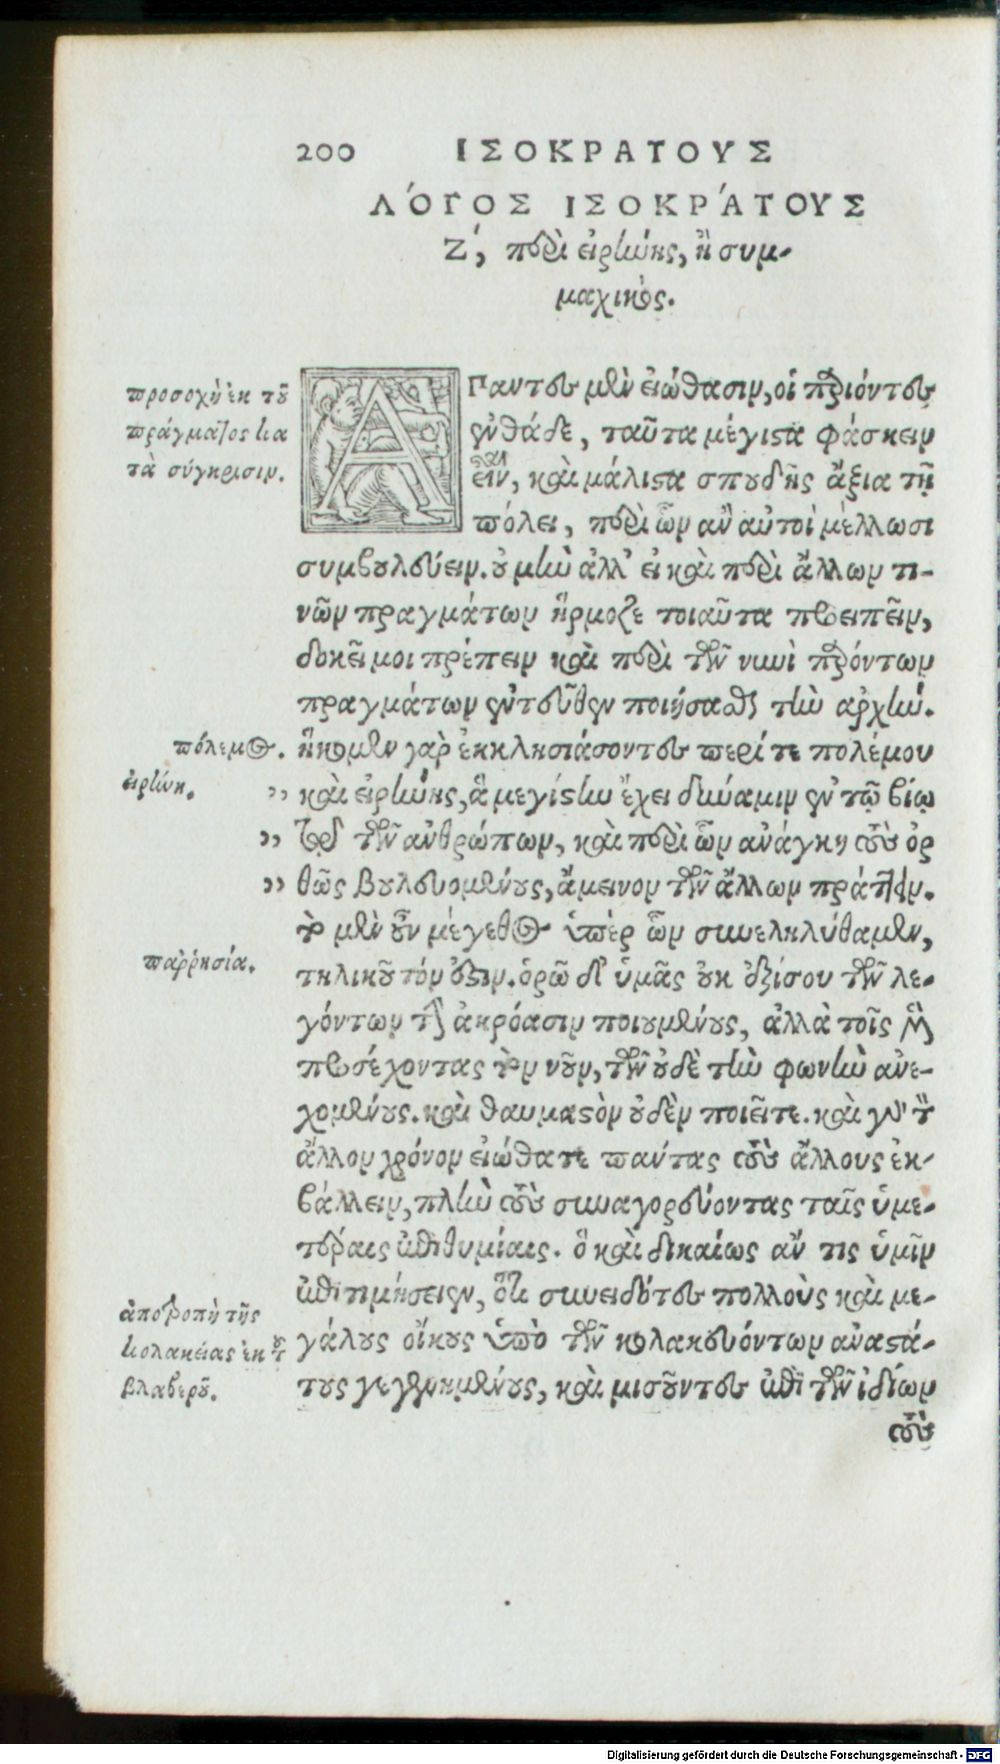 200 ΙΣΟΚΡΑΤΟΥΣ
ΛΌΓΟΣ ΙΣΟΚΡΆΤΟΥΣ
Ζ΄, περὶ εἰρήνης, ἢ συμ-
μαχικός.
προσοχὴ ἐκ τοῦ
πράγματος κα
τὰ σύγκρισιν.
ΑΠαντες μὲν εἰώθασιν, οἱ παριόντες
ἐνθάδε, ταῦτα μέγιστα φάσκειν
εἶναι, καὶ μάλιστα σπουδῆς ἄξια τῇ
πόλει, περὶ ὧν ἂν αὐτοὶ μέλλωσι
συμβουλεύειν. οὐ μὴν ἀλλ' εἰ καὶ περὶ ἄλλων τι-
νῶν πραγμάτων ἥρμοζε τοιαῦτα προειπεῖν,
δοκεῖ μοι πρέπειν καὶ περὶ τῶν νυνὶ παρόντων
πραγμάτων ἐντεῦθεν ποιήσασθαι τὴν ἀρχήν.
πόλεμος.
ἥκομεν γὰρ ἐκκλησιάσοντες περί τε πολέμου
εἰρήνη.
,, καὶ εἰρήνης, ἃ μεγίστην ἔχει δύναμιν ἐν τῷ βίῳ
,, τῷ τῶν ἀνθρώπων, καὶ περὶ ὧν ἀνάγκη τοὺς ὀρ
,, θῶς βουλευομένους, ἄμεινον τῶν ἄλλων πράττειν.
τὸ μὲν οὖν μέγεθος ὑπὲρ ὧν συνεληλύθαμεν,
παῤῥησία.
τηλικοῦτόν ἐστιν. ὁρῶ δ' ὑμᾶς οὐκ ἐξίσου τῶν λε-
γόντων τὴν ἀκρόασιν ποιουμένους, ἀλλὰ τοῖς μὲν
προσέχοντας τὸν νοῦν, τῶν οὐδὲ τὴν φωνὴν ἀνε-
χομένους. καὶ θαυμαστὸν οὐδὲν ποιεῖτε. καὶ γὰρ τὸν
ἄλλον χρόνον εἰώθατε πάντας τοὺς ἄλλους ἐκ-
βάλλειν, πλὴν τοὺς συναγορεύοντας ταῖς ὑμε-
τέραις ἐπιθυμίαις. ὃ καὶ δικαίως ἄν τις ὑμῖν
ἐπιτιμήσειεν, ὅτι συνειδότες πολλοὺς καὶ με-
ἀποτροπὴ τῆς
κολακείας ἐκ τοῦ
βλαβεροῦ.
γάλους οἴκους ὑπὸ τῶν κολακευόντων ἀναστά-
τους γεγενημένους, καὶ μισοῦντες ἐπὶ τῶν ἰδίων
τοὺς
Digitalisierung gefördert durch die Deutsche Forschungsgemeinschaft - DFG